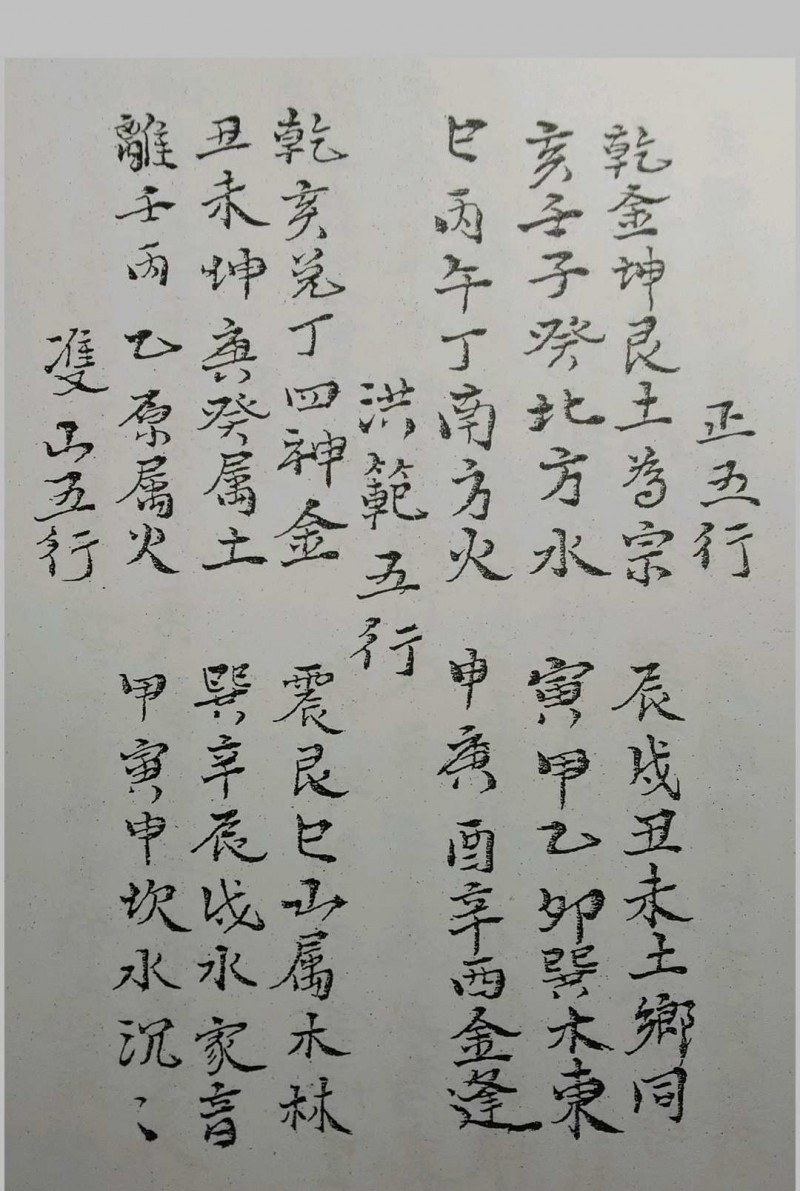 正五行
乾金坤艮土為宗 辰戌丑未土鄉同
亥壬子癸北方水 寅甲乙卯巽木東
巳丙午丁南方火 申庚酉辛西金逢
洪範五行
乾亥兌丁四神金 震艮巳山属木林
丑未坤庚癸属土 巽辛辰戌水家音
離壬丙乙原属火 甲寅申坎水沉〻
雙山五行